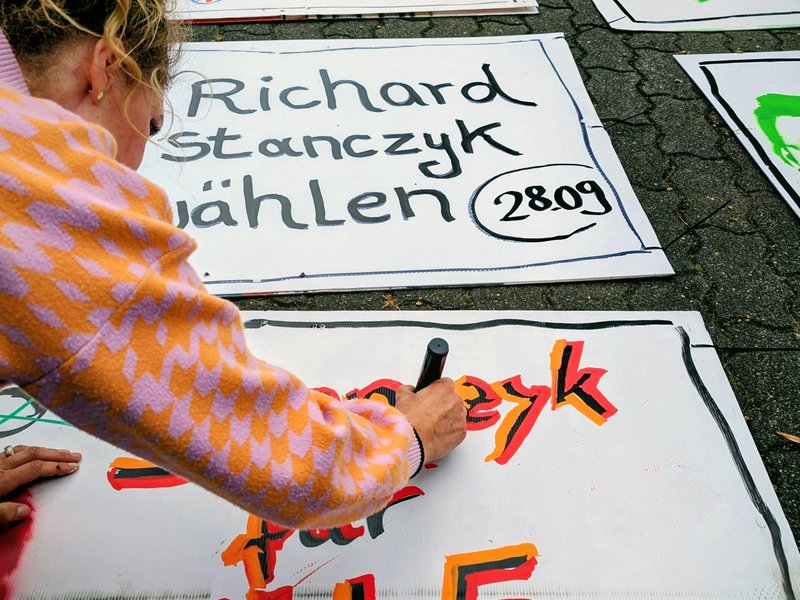 Richard
Stanczyk
wählen 28.09
czyk
für